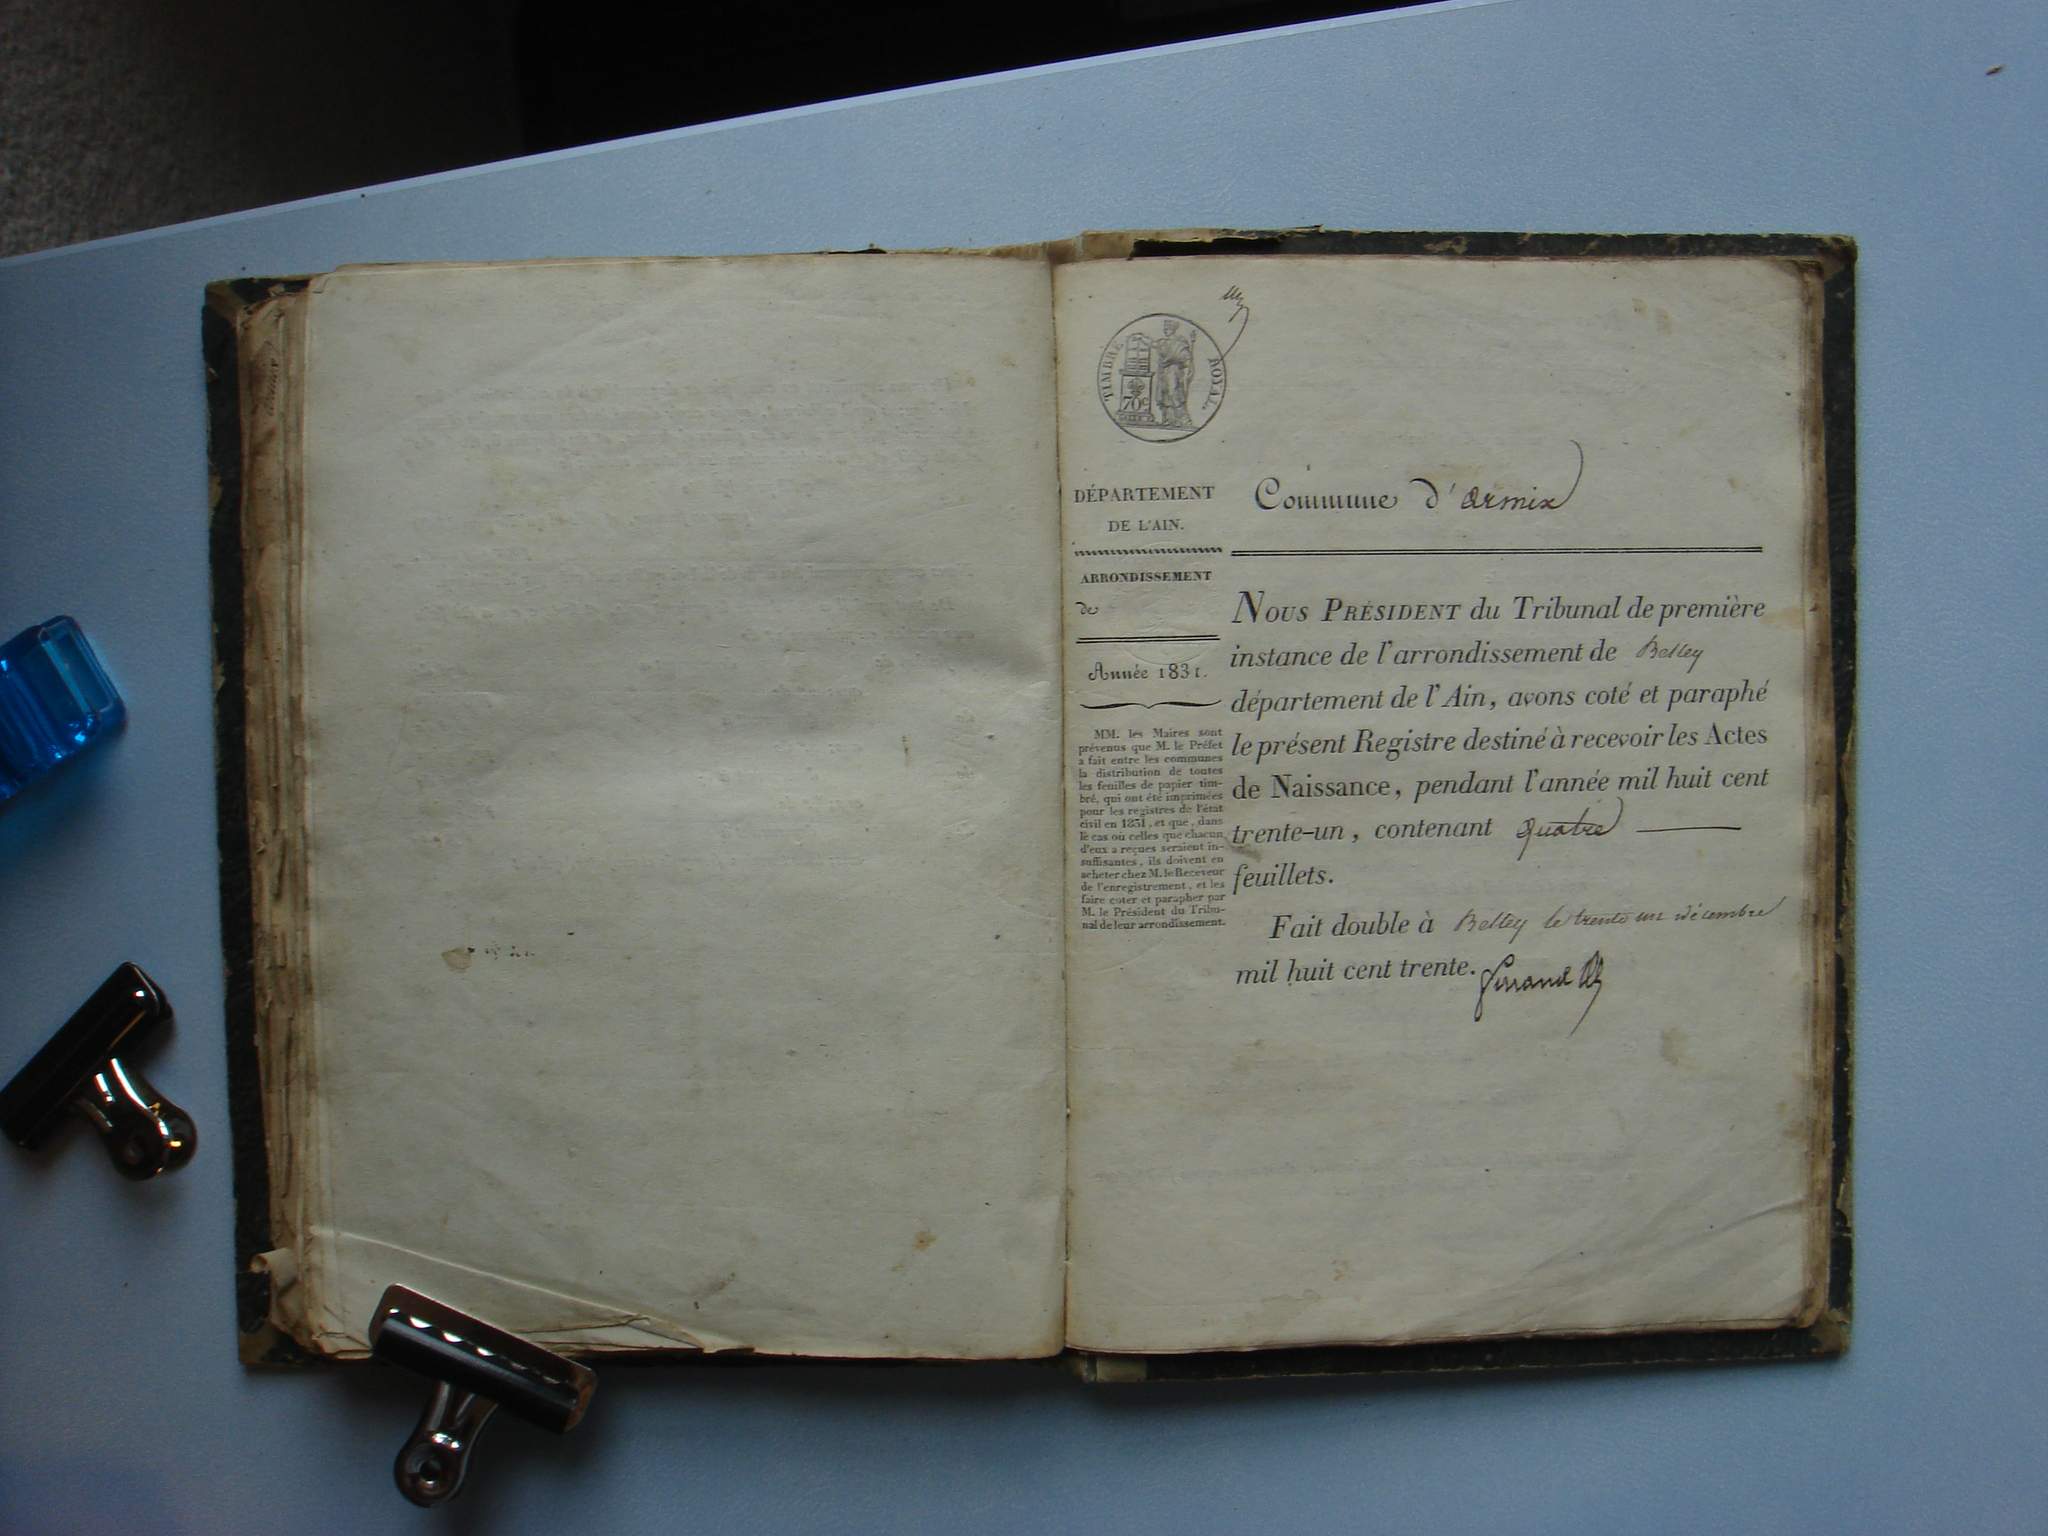 TIMBRE ROYAL.
70c
DÉPARTEMENT
DE L'AIN.
ARRONDISSEMENT
de
Année 1831.
MM. les Maires sont
prévenus que M. le Préfet
a fait entre les communes
la distribution de toutes
les feuilles de papier tim-
bré, qui ont été imprimées
pour les registres de l'état
civil en 1831, et que, dans
le cas où celles que chacun
d'eux a reçues seraient in-
suffisantes, ils doivent en
acheter chez M. le Receveur
de l'enregistrement, et les
faire coter et parapher par
M. le Président du Tribu-
nal de leur arrondissement.
Commune d'Armix
Nous Président du Tribunal de première
instance de l'arrondissement de Belley
département de l'Ain, avons coté et paraphé
le présent Registre destiné à recevoir les Actes
de Naissance, pendant l'année mil huit cent
trente-un, contenant quatre
feuillets.
Fait double à Belley le trente un décembre
mil huit cent trente.